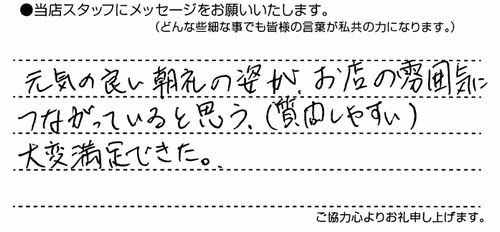 ●当店スタッフにメッセージをお願いいたします。
（どんな些細な事でも皆様の言葉が私共の力になります。）
元気の良い朝礼の姿が、お店の雰囲気に
つながっていると思う、（質問しやすい）
大変満足できた。
ご協力心よりお礼申し上げます。